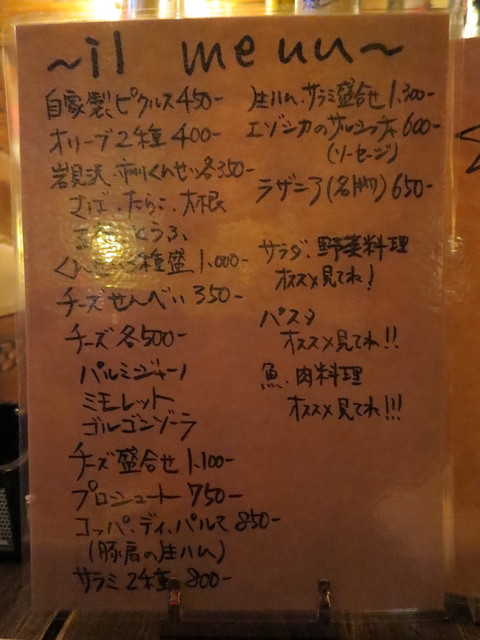 ~il menu~
自家製ピクルス 450-
オリーブ2種 400-
岩見沢 くんせい各350-
さば、たらこ、大根
とうふ、
くんせい3種盛 1,000-
チーズせんべい 350-
チーズ各500-
パルミジャーノ
ミモレット
ゴルゴンゾーラ
チーズ盛合せ 1,100-
プロシュート 750-
コッパ・ディ・パルマ 850-
(豚肩の生ハム)
サラミ2種 800-
生ハム、サラミ盛合せ 1,300-
エゾシカのサルシッチャ 600-
(ソーセージ)
ラザニア(名物) 650-
サラダ、野菜料理
オススメ見てね!
パスタ
オススメ見てね!!
魚、肉料理
オススメ見てね!!!